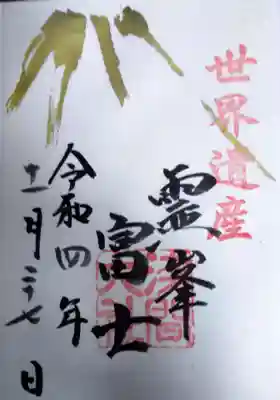 世界遺産
霊峯
富士
浅間
大社
令和四年
十一月二十七日